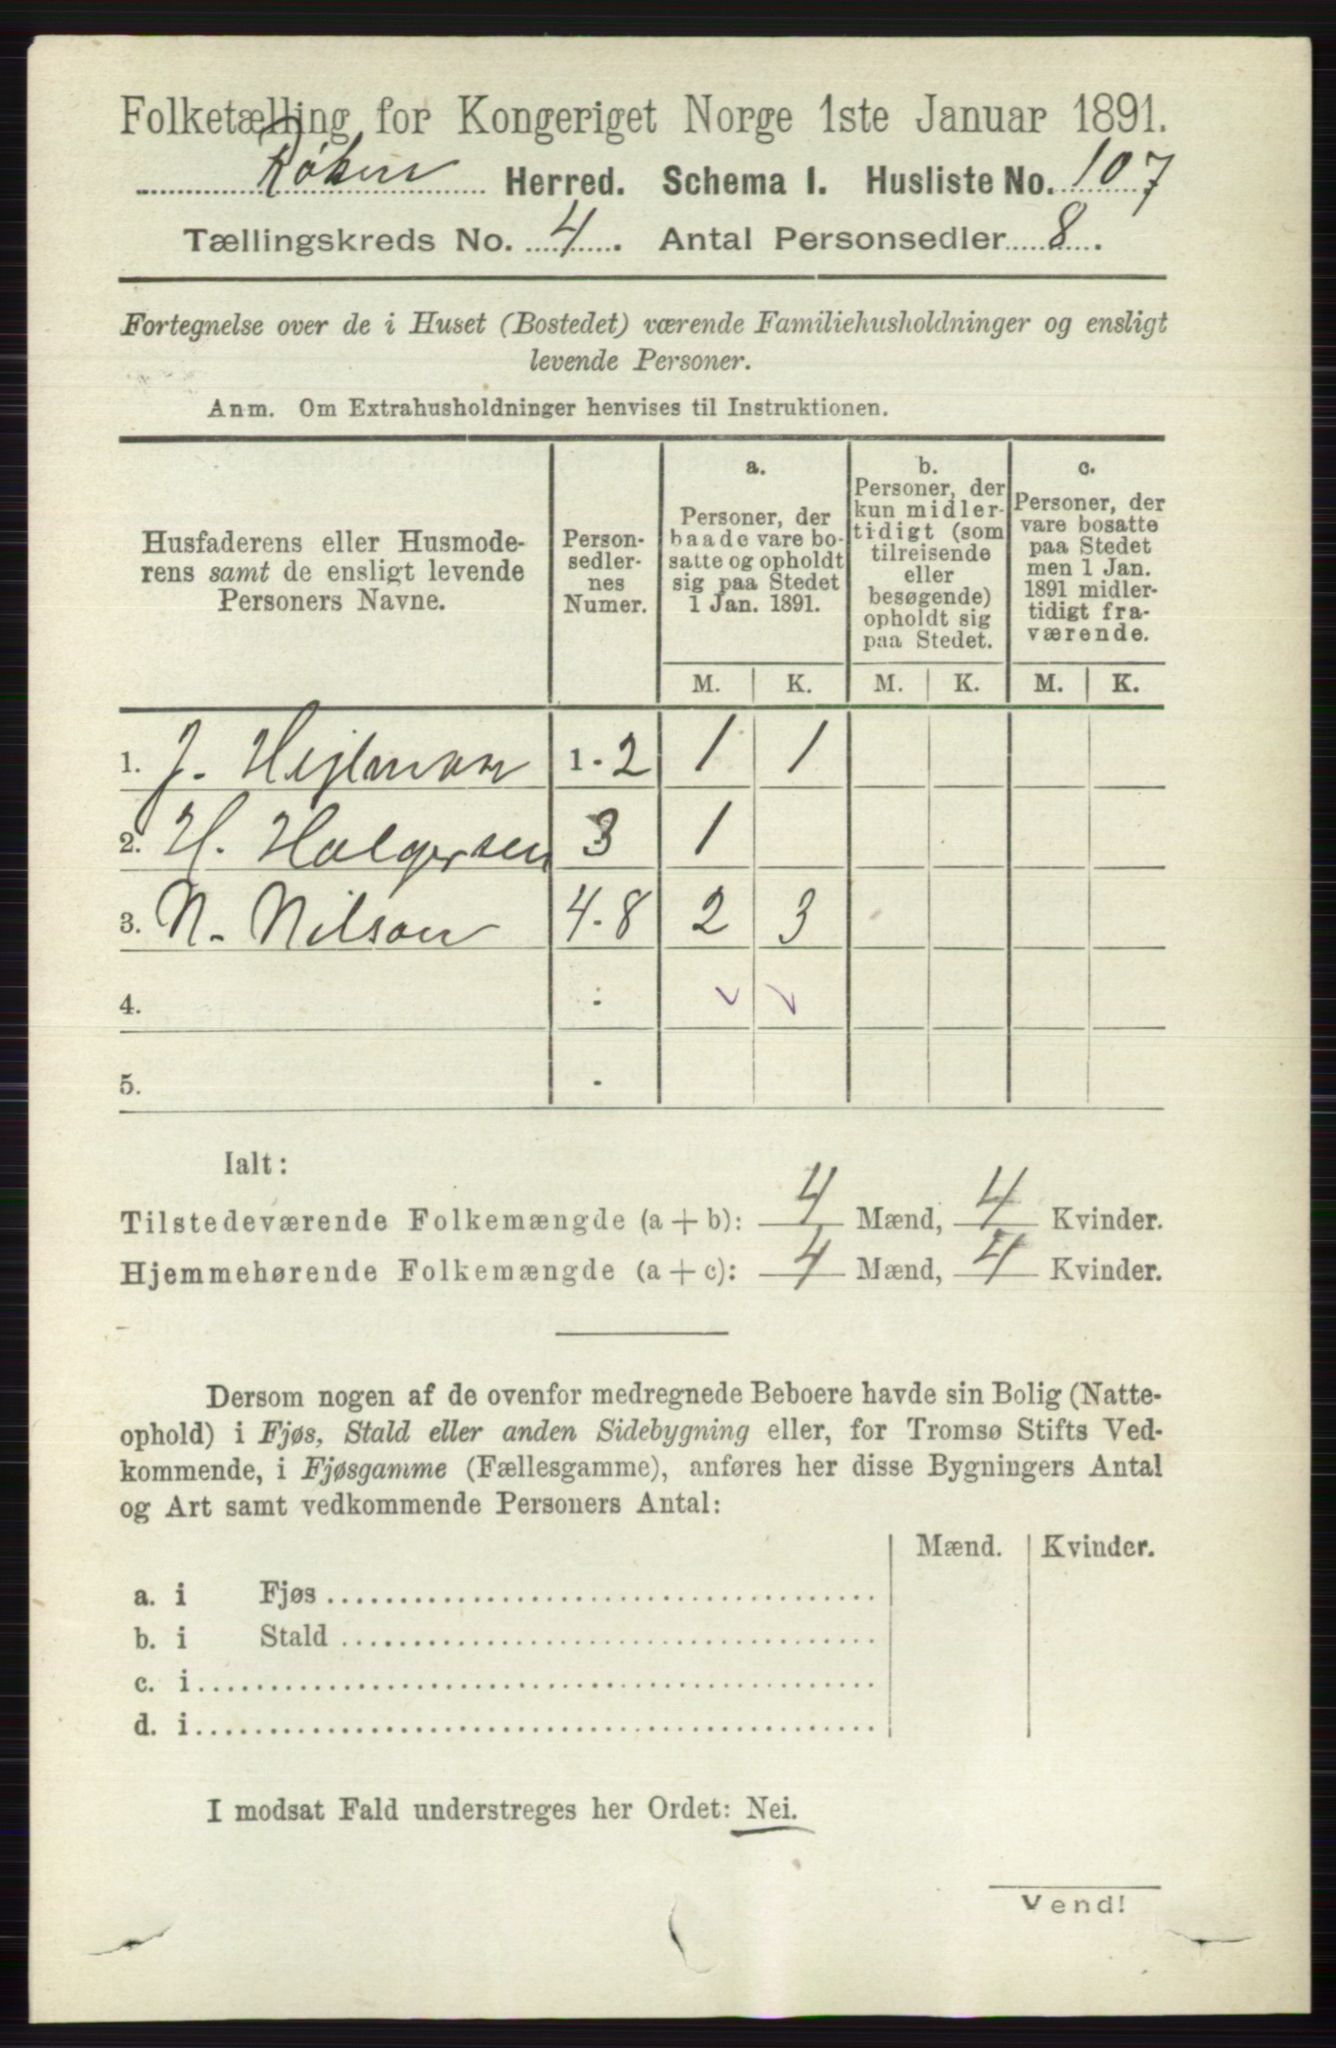 Folketælling for Kongeriget Norge 1ste Januar 1891.
Røken Herred. Schema I. Husliste No. 107
Tællingskreds No. 4. Antal Personsedler 8.
Fortegnelse over de i Huset (Bostedet) værende Familiehusholdninger og ensligt
levende Personer.
Anm. Om Extrahusholdninger henvises til Instruktionen.
Husfaderens eller Husmode-
rens samt de ensligt levende
Personers Navne.
Person-
sedler-
nes
Numer.
a.
Personer, der
baade vare bo-
satte og opholdt
sig paa Stedet
1 Jan. 1891.
b.
Personer, der
kun midler-
tidigt (som
tilreisende
eller
besøgende)
opholdt sig
paa Stedet.
c.
Personer, der
vare bosatte
paa Stedet
men 1 Jan.
1891 midler-
tidigt fra-
værende.
M. K. M. K. M. K.
1. J. 1-2 1 1
2. H. Holgersen 3 1
3. N. Nilson 4-8 2 3
4. -
5. -
Ialt:
Tilstedeværende Folkemængde (a + b): 4 Mænd, 4 Kvinder.
Hjemmehørende Folkemængde (a + c): 4 Mænd, 4 Kvinder.
Dersom nogen af de ovenfor medregnede Beboere havde sin Bolig (Natte-
ophold) i Fjøs, Stald eller anden Sidebygning eller, for Tromsø Stifts Ved-
kommende, i Fjøsgamme (Fællesgamme), anføres her disse Bygningers Antal
og Art samt vedkommende Personers Antal:
Mænd. Kvinder.
a. i Fjøs
b. i Stald
c. i
d. i
I modsat Fald understreges her Ordet: Nei.
Vend!